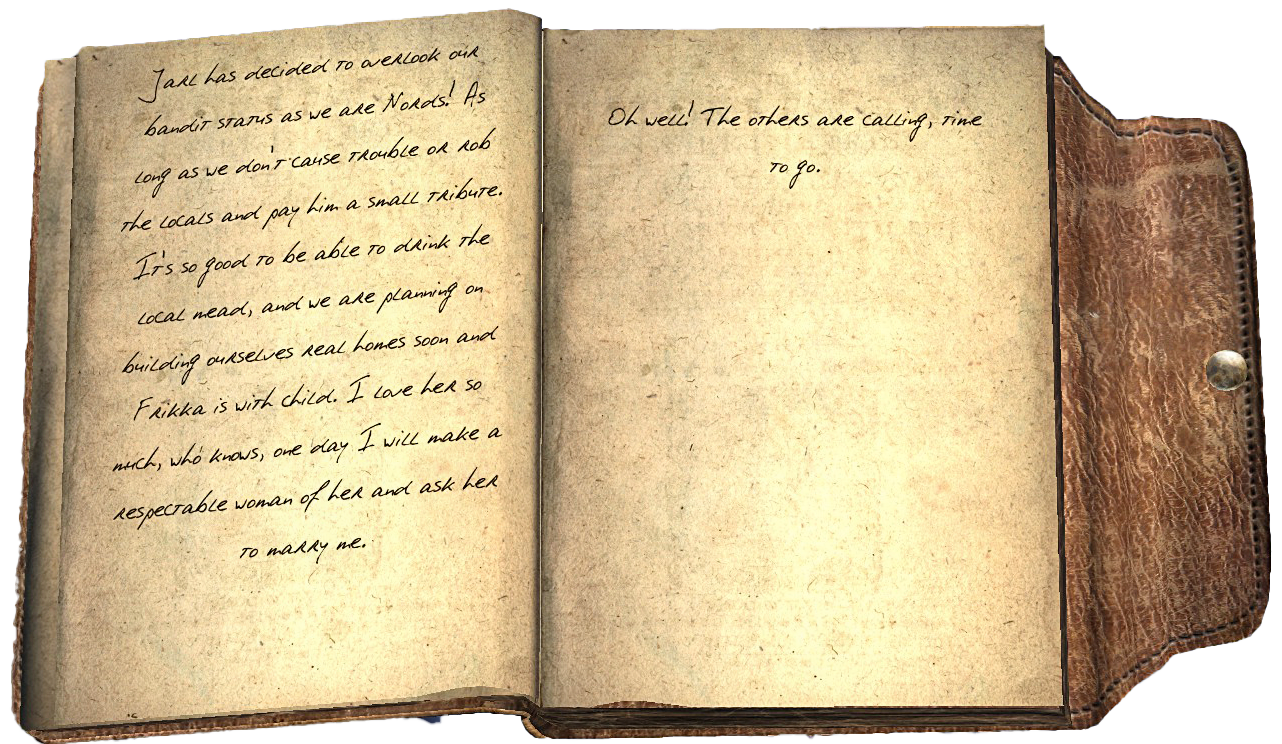 Jarl has decided to overlook our
bandit status as we are Nords! As
long as we don't cause trouble or rob
the locals and pay him a small tribute.
It's so good to be able to drink the
local mead, and we are planning on
building ourselves real homes soon and
Frikka is with child. I love her so
much, who knows, one day I will make a
respectable woman of her and ask her
to marry me.
Oh well! The others are calling, time
to go.